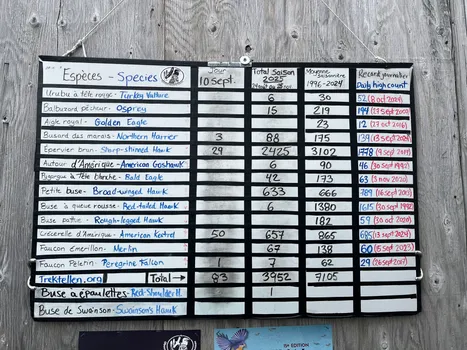 Espèces - Species Jour 10 Sept. Total Saison 2025 Moyenne Saisonnière 1996-2024 Record journalier Daily high count
Urubu à tête rouge - Turkey Vulture 6 30 52 (8 oct 2020)
Balbuzard pêcheur - Osprey 15 219
Aigle royal - Golden Eagle 23 12
Busard des marais - Northern Harrier 3 88 175 139
Épervier brun - Sharp-shinned Hawk 29 2425 3102 1778
Autour d'Amérique - American Goshawk 6 90 46 (30 sept 1997)
Pygargue à tête blanche - Bald Eagle 42 173 63 (3 nov 2020)
Petite buse - Broad-winged Hawk 633 666 789
Buse à queue rousse - Red-tailed Hawk 6 1380 1615
Buse pattue - Rough-legged Hawk 182 59
Crécerelle d'Amérique - American Kestrel 50 657 865 685
Faucon émerillon - Merlin 67 138 60
Faucon Pèlerin - Peregrine Falcon 1 7 62 29
Trektellen.org Total → 83 3952 7105
Buse à épaulettes - Red-Shoulder H. 1
Buse de Swainson - Swainson's Hawk